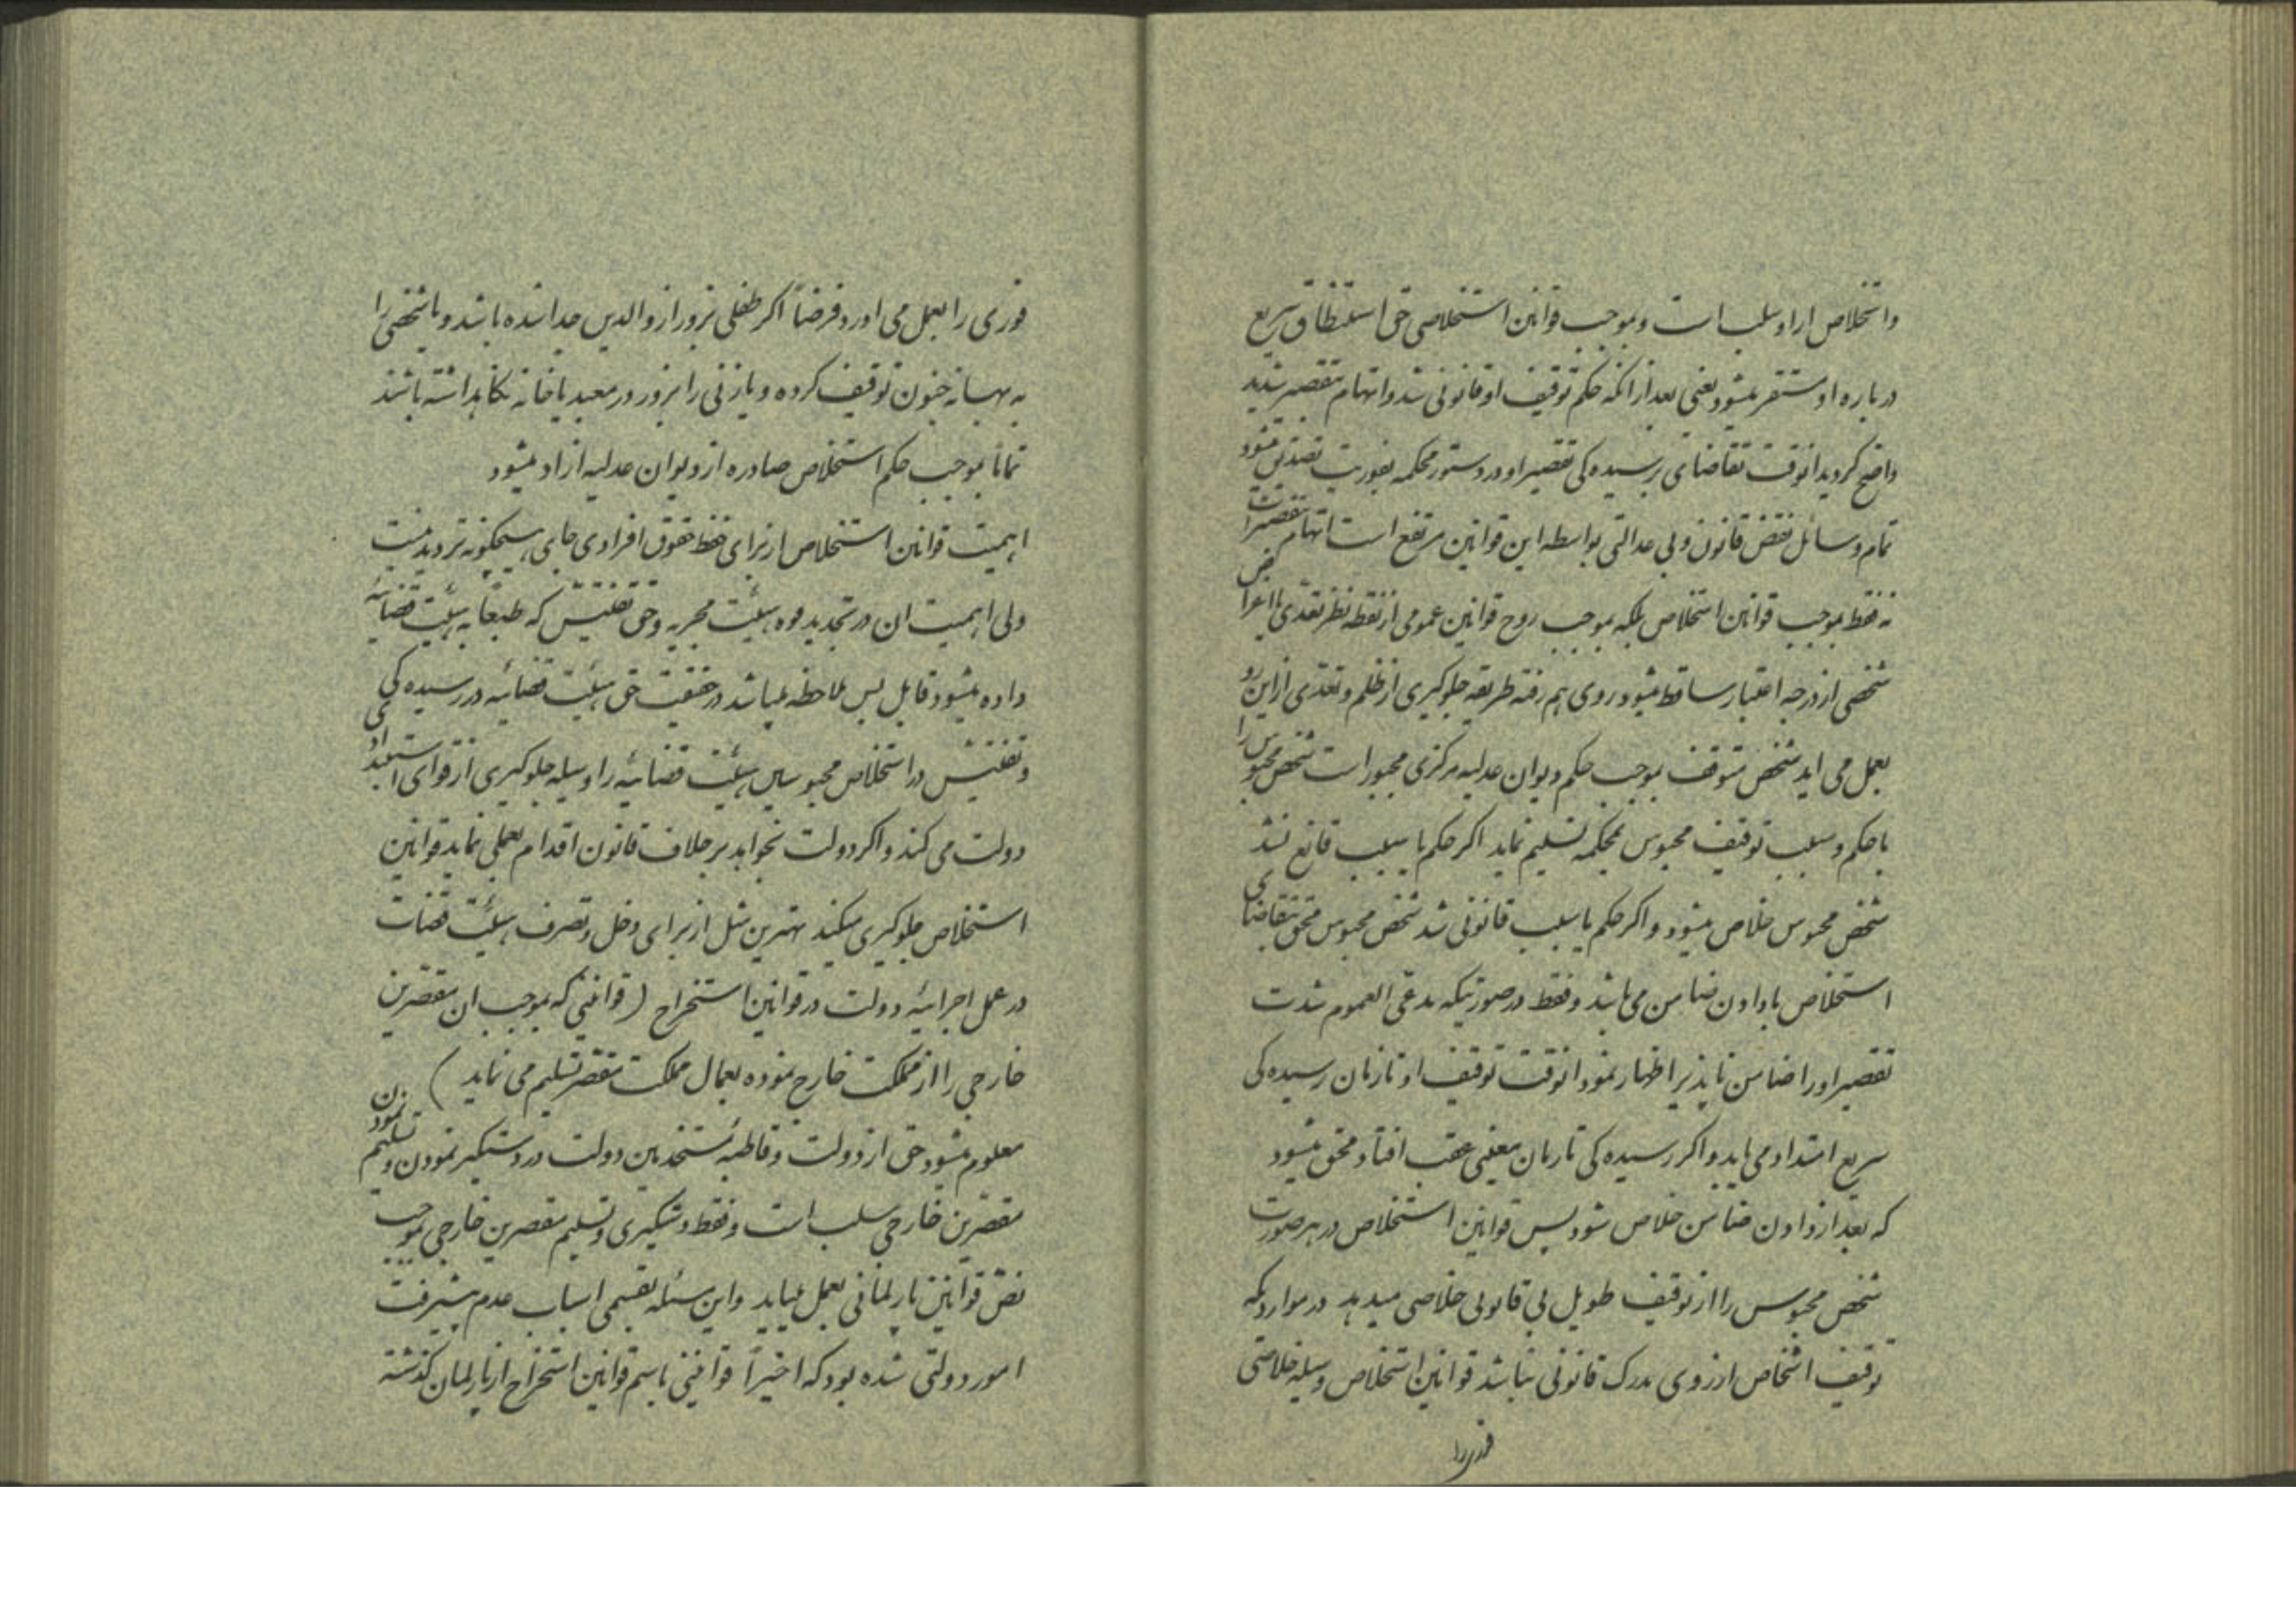 واستخلاص از او سلب است و بموجب قوانین استخلاصی حق استنطاق سریع
درباره او مستقر میشود یعنی بعد از انکه حکم توقیف او قانونی شد و اتهام مقصر شدید
واضح گردید انوقت تقاضای برسیده کی تقصیر او در دستور محکمه بفوریت تصدیق میشود
تمام وسائل نقض قانون و بی عدالتی بواسطه این قوانین مرتفع است اتهام
نه فقط بموجب قوانین استخلاص بلکه بموجب روح قوانین عمومی از نقطه نظر تعدی با اغراض
شخصی از درجه اعتبار ساقط میشود روی هم رفته طریقه جلوکیری از ظلم و تعدی از این رو
بعمل می اید شخص متوقف بموجب حکم دیوان عدلیه مرکزی مجبور است شخص محبوس را
با حکم و سبب توقیف محبوس بمحکمه تسلیم نماید اکر حکم یا سبب قانع نشد
شخص محبوس خلاص میشود و اکر حکم یا سبب قانونی شد شخص محبوس محق بتقاضای
استخلاص با دادن ضامن می باشد و فقط در صورتیکه مدعی العموم شدت
تقصیر او را ضامن ناپذیر اظهار نمود انوقت توقیف او تا زمان رسیده کی
سریع امتداد می یابد و اکر رسیده کی تا زمان معینی عقب افتاد محق میشود
که بعد از دادن ضامن خلاص شود پس قوانین استخلاص در هر صورت
شخص محبوس را از توقیف طویل بی قانونی خلاصی میدهد در مواردیکه
توقیف اشخاص از روی مدرک قانونی نباشد قوانین استخلاص وسیله خلاصی
فوری را
فوری را بعمل می اورد و فرضاً اکر طفلی بزور از والدین جدا شده باشد و یا شخصی را
به بهانه جنون توقیف کرده و یا زنی را بزور در معبد یا خانه نکاهداشته باشند
تماماً بموجب حکم استخلاص صادره از دیوان عدلیه ازاد میشود
اهمیت قوانین استخلاص از برای حفظ حقوق افرادی جای هیچکونه تردید نیست
ولی اهمیت ان در تحدید قوه هیئت مجریه و حق تفتیش که طبعاً به هیئت قضائیه
داده میشود قابل بس ملاحظه میباشد در حقیقت حق هیئت قضائیه در رسیده کی
و تفتیش در استخلاص محبوسین هیئت قضائیه را وسیله جلوکیری از قوای استبدادی
دولت می کند و اکر دولت بخواهد بر خلاف قانون اقدام بعملی نماید قوانین
استخلاص جلوکیری میکند بهترین مثل از برای دخل و تصرف هیئت قضات
در عمل اجرائیه دولت در قوانین استخراج ( قوانینی که بموجب ان مقصرین
خارجی را از مملکت خارج نموده بعمال مملکت مقصر تسلیم می نماید )
معلوم میشود حق از دولت و قاطبه مستخدمین دولت در دستکیر نمودن و تسلیم نمودن
مقصرین خارجی سلب است و فقط دستکیری و تسلیم مقصرین خارجی بموجب
نص قوانین پارلمانی بعمل میاید و این مسئله بقسمی اسباب عدم پیشرفت
امور دولتی شده بود که اخیراً قوانینی باسم قوانین استخراج از پارلمان کذشته